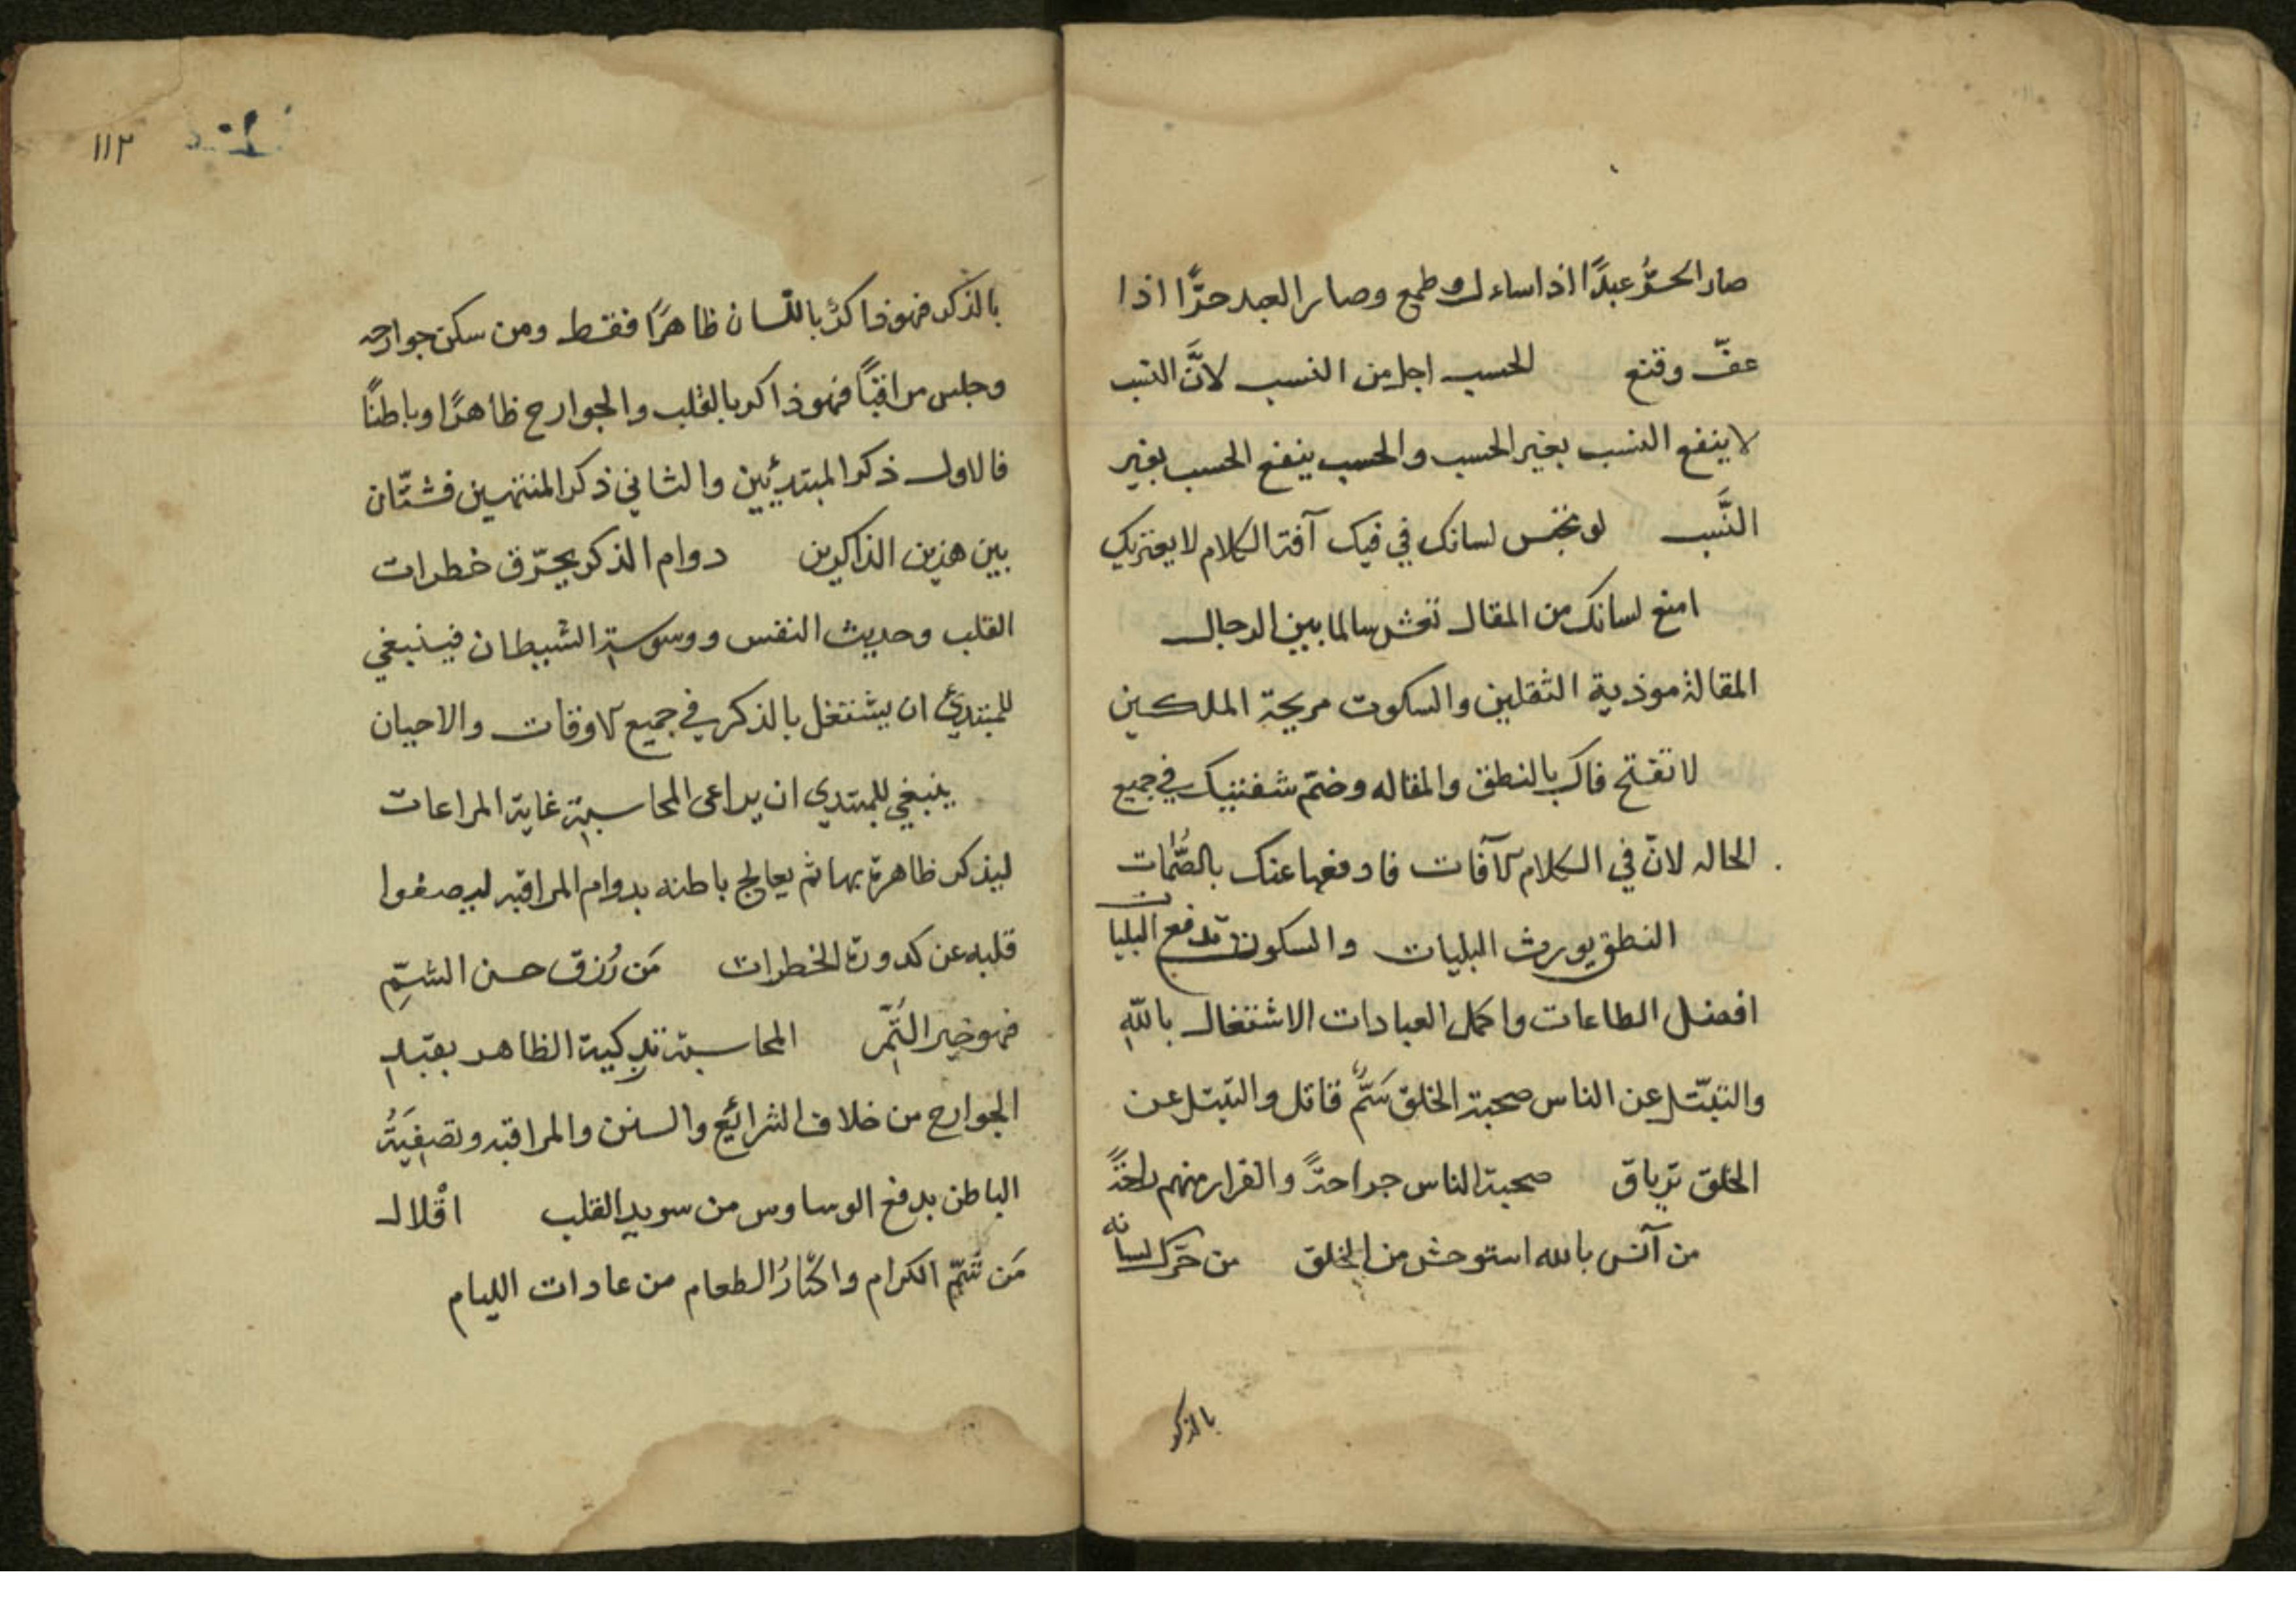 صار الحرُّ عبدًا اذا ساءل وطمع وصار العبد حرًّا اذا
عفّ وقنع الحسب اجل من النسب لانَّ النسب
لا ينفع النسب بغير الحسب والحسب ينفع الحسب بغير
النَّسب لو تحبس لسانك في فيك آفة الكلام لا يعتريك
امنع لسانك من المقال تعش سالما بين الرجال
المقالة موذية الثقلين والسكوت مريحة الملكين
لا تفتح فاك بالنطق والمقاله وضمّ شفتيك في جميع
الحاله لانّ في الكلام لآفات فادفعها عنك بالصُّمات
النطق يورث البليات والسكوت تدفع البليات
افضل الطاعات واكمل العبادات الاشتغال باللّه
والتبتّل عن الناس صحبة الخلق سَمٌّ قاتل والتبتل عن
الخلق ترياق صحبة الناس جراحةً والفرار منهم راحةً
من آنس بالله استوحش من الخلق من حرّك لسانه
بالذكر
١١٢
بالذكر فهو ذاكرٌ باللسان ظاهرًا فقط ومن سكن جوارحه
وجلس مراقبًا فهو ذاكر بالقلب والجوارح ظاهرًا وباطنًا
فالاول ذكر المبتدئين والثاني ذكر المنتهين فشتّان
بين هذين الذاكرين دوام الذكر يحرّق خطرات
القلب وحديث النفس ووسوسة الشيطان فينبغي
للمبتدئ ان يشتغل بالذكر في جميع الاوقات والاحيان
ينبغي للمبتدي ان يراعى المحاسبة غاية المراعات
ليذكر ظاهرة بها ثم يعالج باطنه بدوام المراقبه ليصفوا
قلبه عن كدورة الخطرات مَن رُزق حسن الشيم
فهو خير المحاسبة تزكية الظاهر بقيد
الجوارح من خلاف الشرائع والسنن والمراقبه وتصفيَةُ
الباطن بدفع الوساوس من سويد القلب اقْلال
مَن شيم الكرام واكثارُ الطعام من عادات الليام